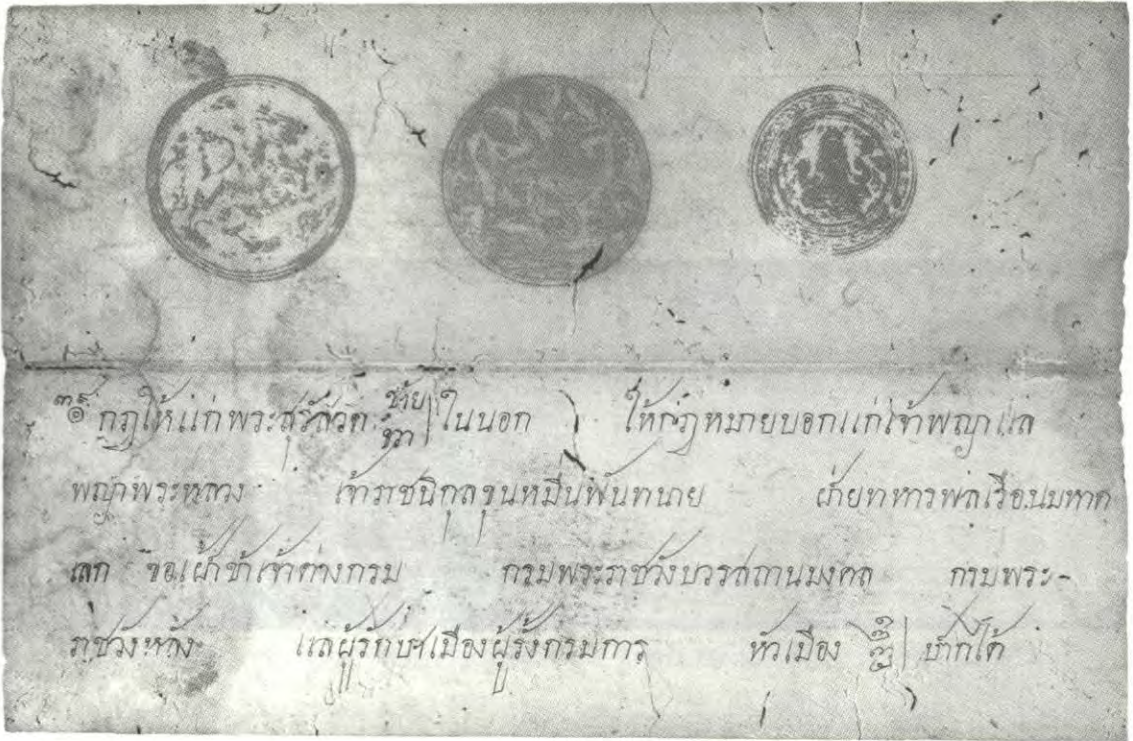 ๓๙ ๏ กฎให้แก่พระสุรัสวดี ซ้าย ขวา ในนอก ให้กฎหมายบอกแก่เจ้าพญาแล
พญาพระหลวง เจ้าราชนิกุลขุนหมื่นพันทนาย ฝ่ายทหารพลเรือนมหาด
เลก ขอเฝ้าข้าเจ้าต่างกรม กรมพระราชวังบวรสถานมงคล กรมพระ-
ราชวังหลัง แลผู้รักษาเมืองผู้รั้งกรมการ หัวเมือง ปากใต้